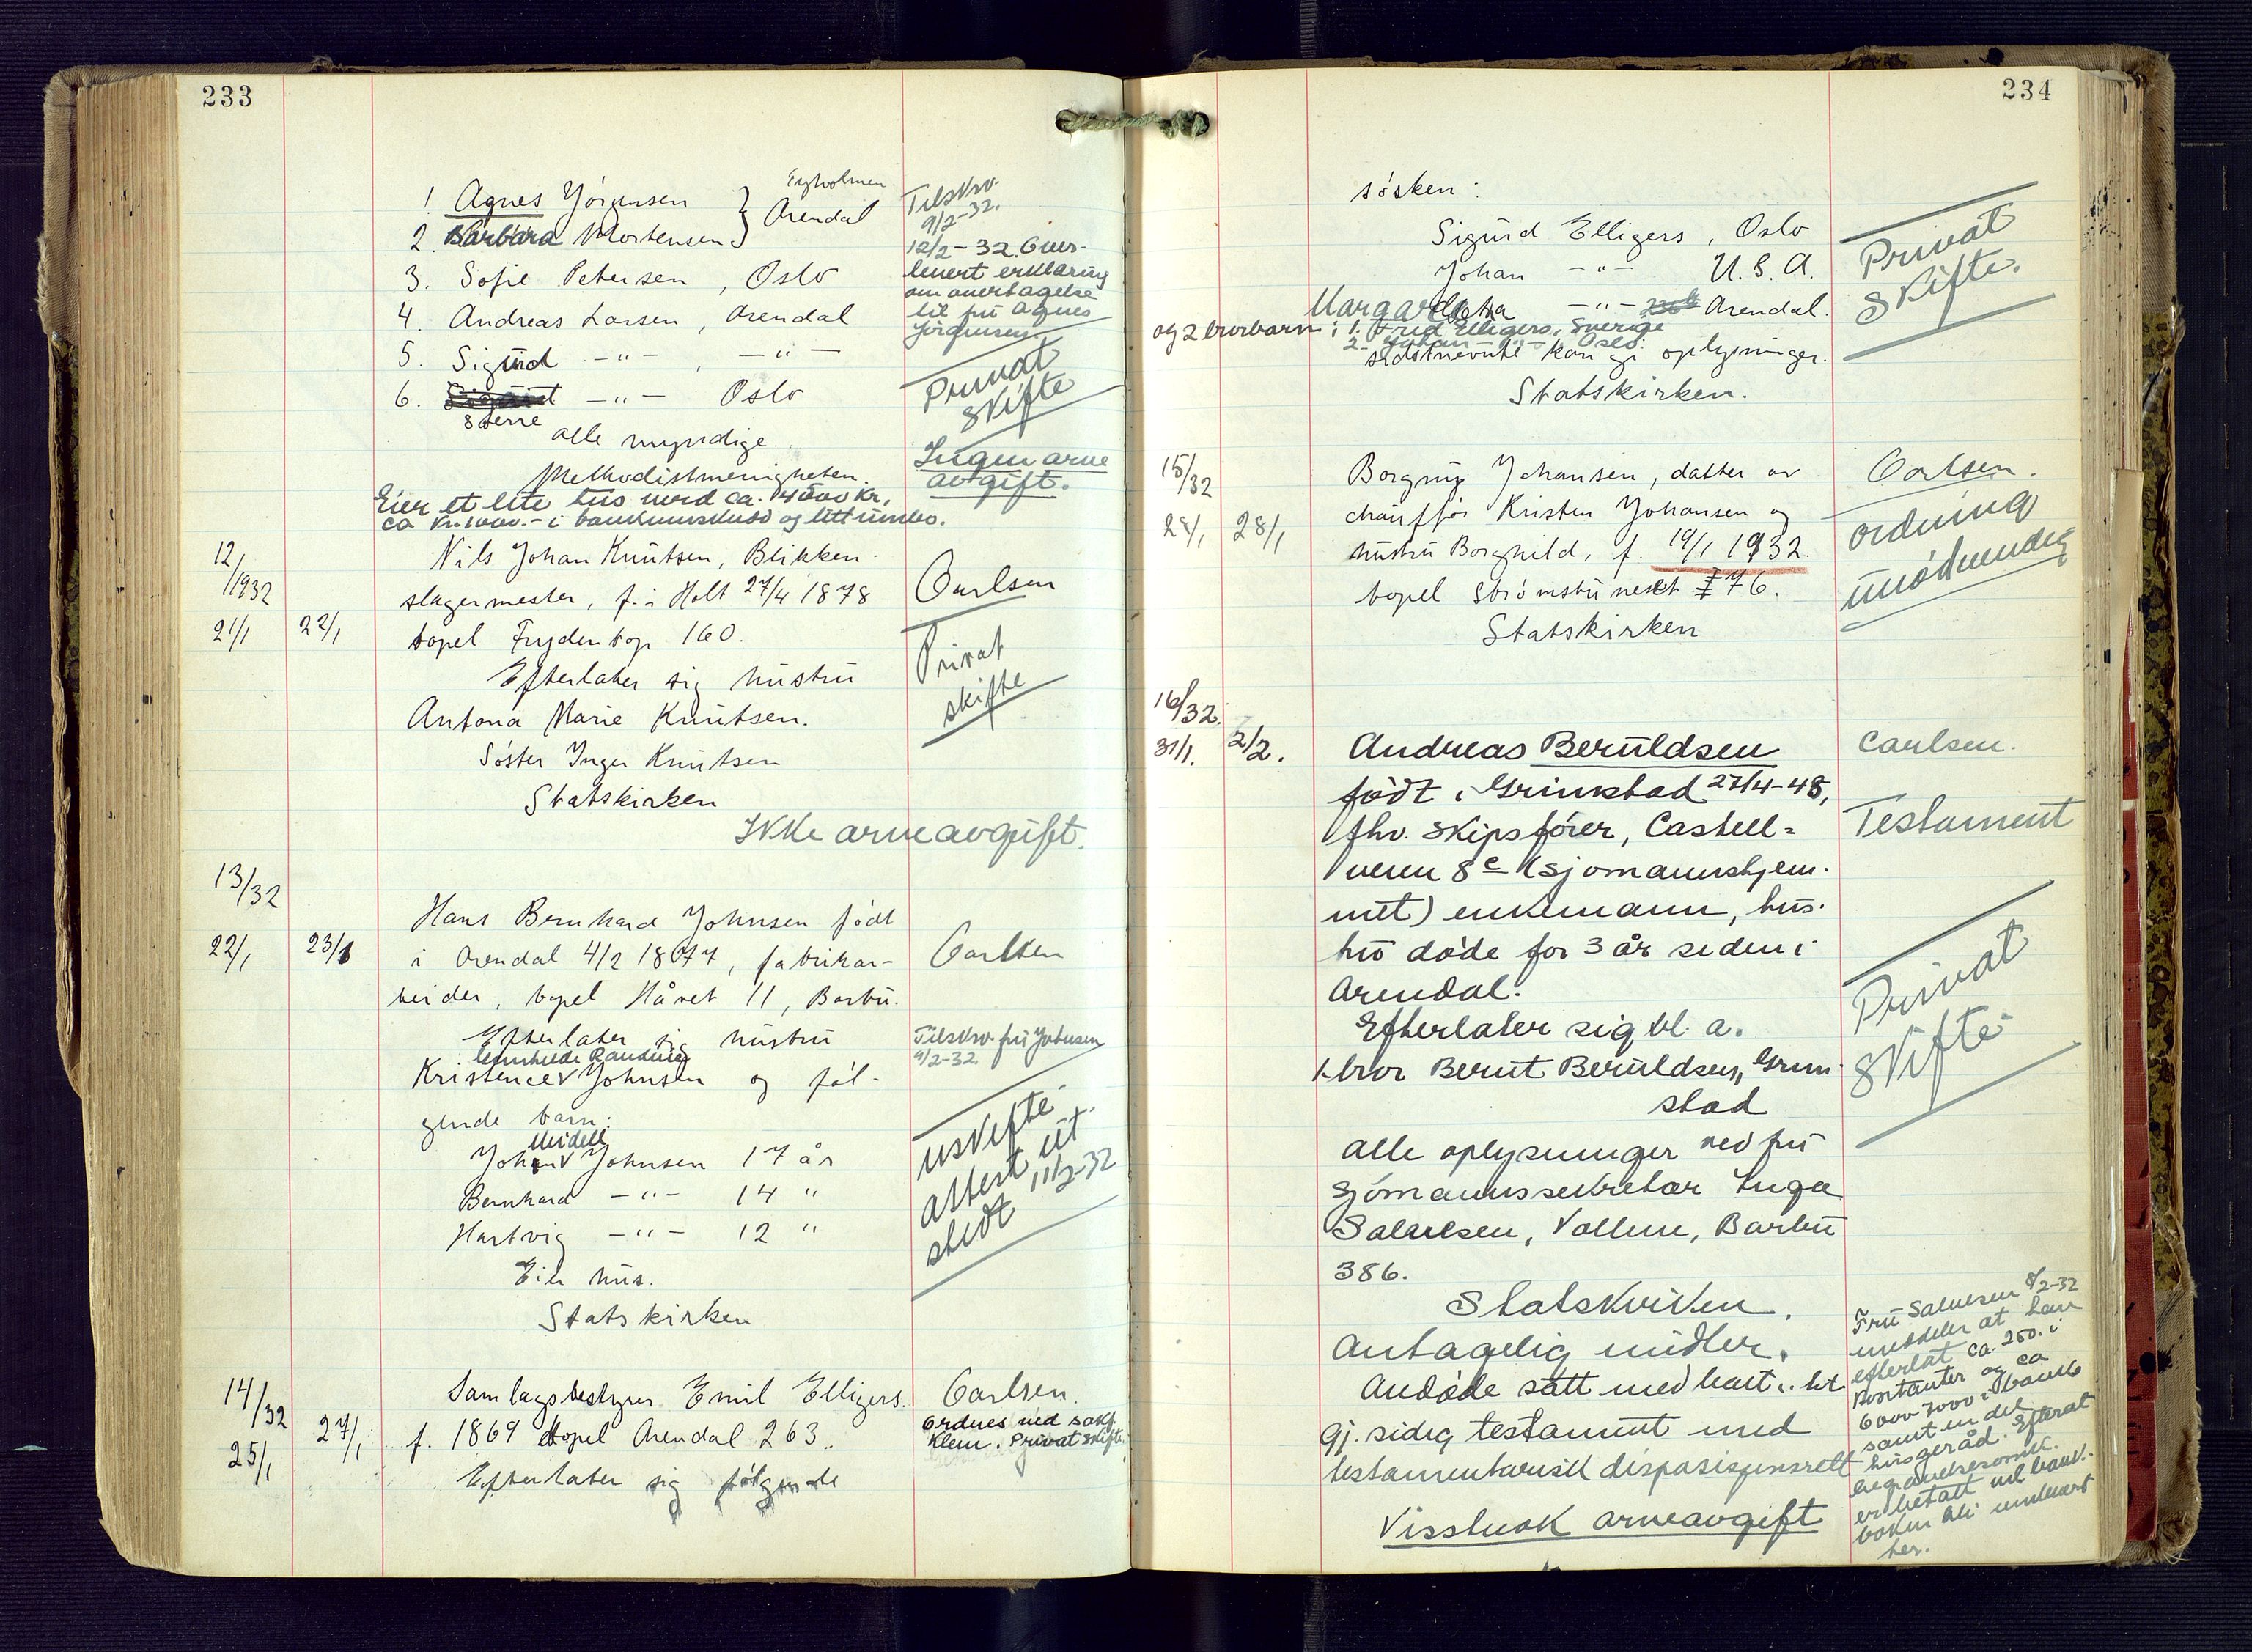 233
1 Agnes Jørgensen } Arendal
2. Barbara Mortensen
3. Sofie Petersen, Oslo
4. Andreas Larsen, Arendal
5. Sigurd -"- , -"-
6. -"- Oslo
Sterre
alle myndige.
Methodistmenigheten.
Eier et lite hus med ca. 4000 kr,
ca kr. 1000.- i bankinnskudd og litt innbo.
Tilskrv.
9/2-32.
12/2-32. Over-
levert erklæring
om overtagelse
til fru Agnes
Jørgensen
Privat
skifte
Ingen arve
avgift.
12/1932
21/1 22/1
Nils Johan Knutsen, Blikken-
slagermester, f. i Holt 27/4 1878
bopel Frydenbgr 160.
Efterlater sig hustru
Antona Marie Knutsen.
Søster Inger Knutsen
Statskirken
Ikke arveavgift.
Carlsen
Privat
skifte
13/32
22/1 23/1
Hans Bernhard Johnsen født
i Arendal 4/2 1877, fabrikar-
beider, bopel Håvet 11, Barbu.
Efterlater sig hustru
Kristence Johnsen og føl-
gende barn:
Meidell
Johan Johnsen 17 år
Bernhard -"- 14 "
Hartvig -"- 12 "
Eier hus.
Statskirken
Carlsen
Tilskrv. fru Johnsen
9/2-32.
uskifte
attest ut
stedt 11/2-32
14/32
25/1 27/1
Samlagsbestyrer Emil Elligers.
f. 1869 bopel Arendal 263.
Efterlater sig følgende
Carlsen.
Ordnes ved sakf.
Klem. Privat skifte.
234
søsken:
Sigurd Elligers, Oslo
Johan -"- U.S.A.
Margareta -"- Arendal.
og 2 brorbarn: 1. Fred Elligers, Sverige
2. Johan -"- Oslo.
sidstnevnte kan gi oplysninger.
Statskirken.
Privat
skifte.
15/32
28/1 28/1
Borgny Johansen, datter av
chauffør Kristen Johansen og
hustru Borghild, f. 19/1 1932.
bopel Strømsbuneset 76.
Statskirken
Carlsen.
ordning
unødvendig
16/32.
31/1. 2/2.
Andreas Beruldsen
født i Grimstad 27/4-48,
fhv. skipsfører, Castell-
veien 8c (sjømannshjem-
met) enkemann, hus-
tru døde for 3 år siden i
Arendal.
Efterlater sig bl. a.
1 bror Bernt Beruldsen, Grim-
stad
alle oplysninger ved fru
sjømannssekretær Inga
Salvesen, Vollene, Barbu
386.
Statskirken.
Antagelig midler.
Avdøde satt med bart i. h.t
gj. sidig testament med
testamentarisk disposisjonsrett
Visstnok arveavgift
Carlsen.
Testament
Privat
skifte
Fru Salvesen 8/2-32
meddeler at han
efterlot ca. 250. i
kontanter og ca
6000-7000 i bank
samt en del
husgeråd. Efterat
begravelsesomk.
er betalt vil bank-
boken bli innlevert
her.